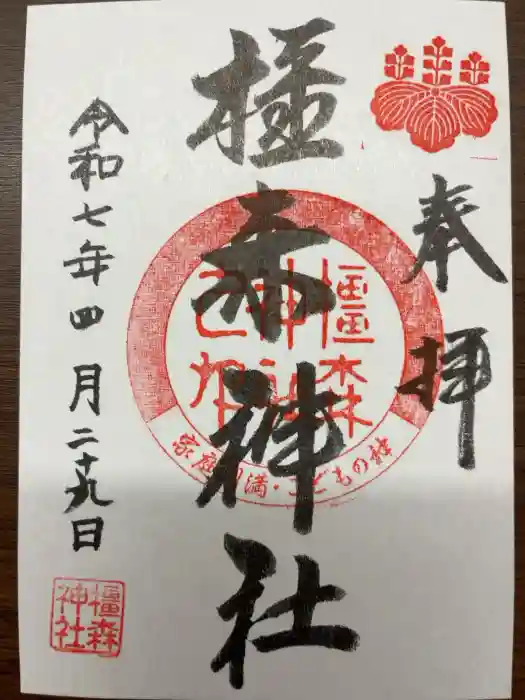 奉拝
橿森神社
橿森
神社
家庭円満・こどもの神
令和七年四月二十九日
橿森
神社